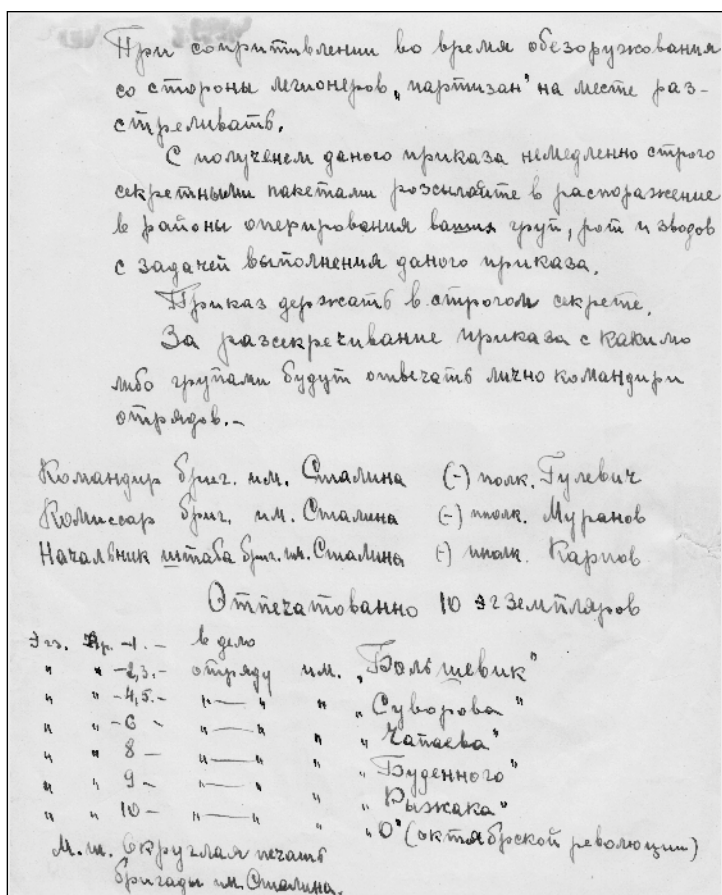 При сопритивлении во время обезоружования
со стороны легионеров „партизан" на месте раз-
стреливать.
С полученем даного приказа немедленно строго
секретными пакетами розсылайте в распоражение
в районы оперирования ваших груп, рот и зводов
с задачей выполнения даного приказа.
Приказ держать в строгом секрете.
За разсекречивание приказа с какимо
либо групами будут отвечать лично командири
отрядов.-
Командир бриг. им. Сталина (-) полк. Гулевич
Комиссар бриг. им. Сталина (-) пполк. Муранов
Начальник штаба бриг. им. Сталина (-) пполк. Карпов
Отпечатованно 10 экземпляров
Экз. Нр. -1.- в дело
" " -2,3.- отряду им. „Большевик"
" " -4,5.- "—" " „Суворова"
" " -6 - "—" " „Чапаева"
" " 8 - "—" " „Буденного"
" " 9 - "—" " „Рыжака"
" " 10 - "—" " „О" (октябрской революции)
М.п. Округлая печать
бригады им. Сталина.